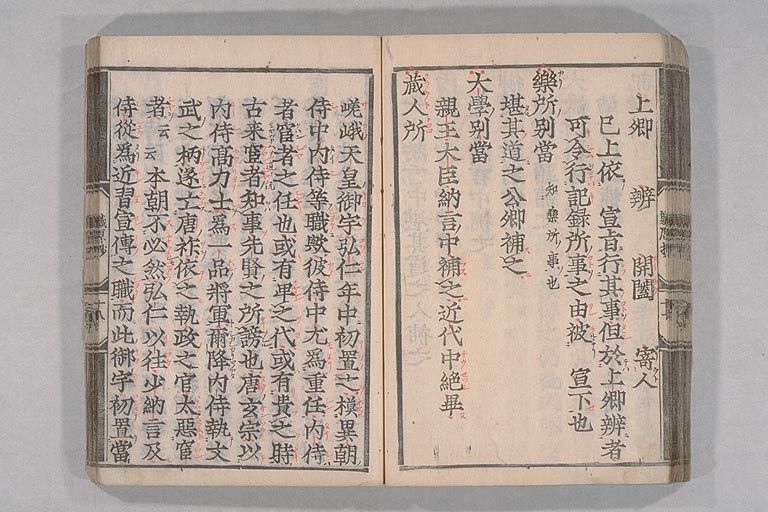 上卿　辨　開闔　寄人
已上依　宣旨行其事但於上卿辨者
可令行記録所事之由被　宣下也
樂所別當　知樂所事也
堪其道之公卿補之
大學別當
親王大臣納言中補之近代中絶畢
蔵人所
嵯峨天皇御宇弘仁年中初置之模異朝
侍中内侍等職歟彼侍中尤爲重任内侍
者宦者之任也或有卑之代或有貴之時
古来宦者知事先賢之所謗也唐玄宗以
内侍高力士爲一品將軍爾降内侍執文
武之柄遂亡唐祚依之執政之官太惡宦
者云云本朝不必然弘仁以往少納言及
侍從爲近習宣傳之職而此御宇初置當